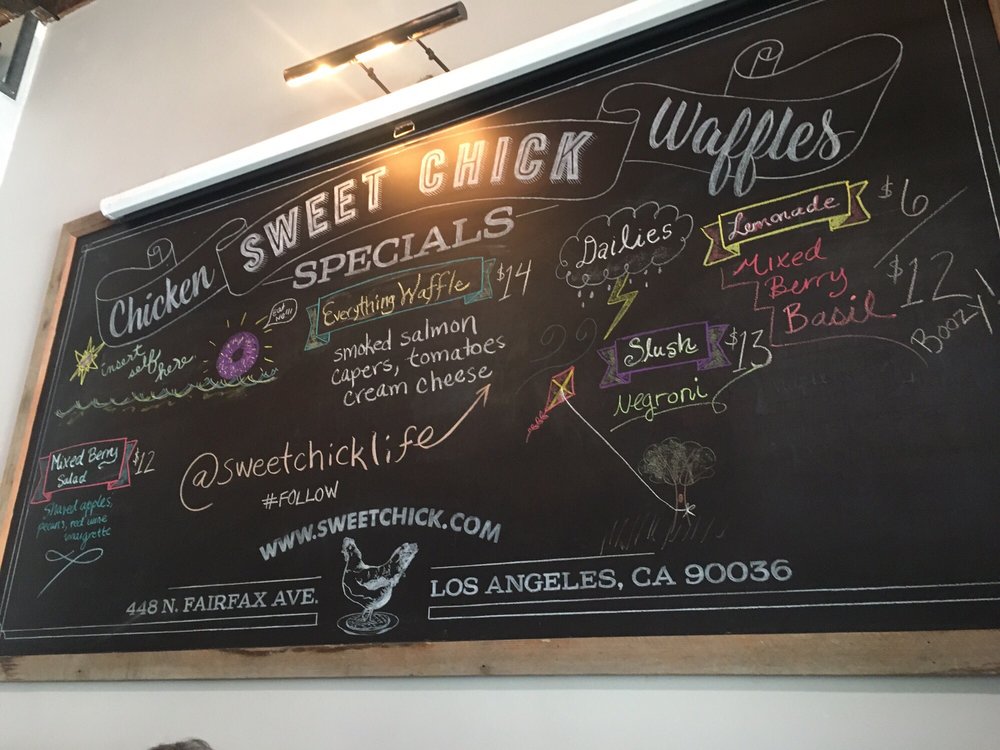 Chicken
SWEET CHICK
Waffles
SPECIALS
insert
self
here
EAT
ME!!!
Everything Waffle $14
smoked salmon
capers, tomatoes
cream cheese
Dailies
Slush $13
Negroni
Lemonade $6
Mixed
Berry
Basil
$12
Boozy!
Mixed Berry $12
Salad
Shaved apples,
pecans, red wine
vinaigrette
@sweetchicklife
#FOLLOW
WWW.SWEETCHICK.COM
448 N. FAIRFAX AVE.
LOS ANGELES, CA 90036